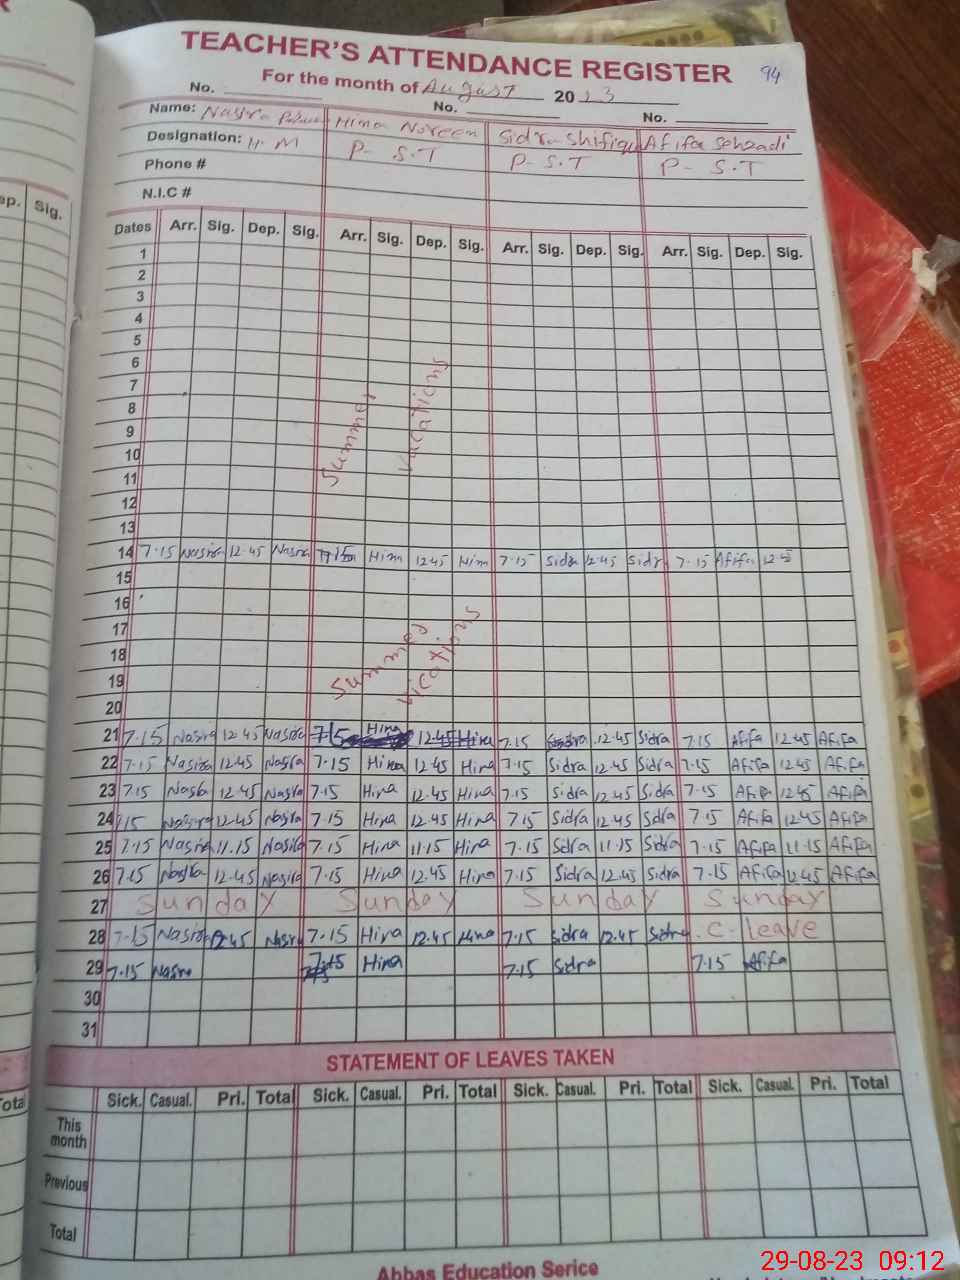 TEACHER'S ATTENDANCE REGISTER
94
For the month of August 2023
No. No. No.
Name: Nasira Hina Noreen Sidra Shifique Afifa Sehzadi
Designation: H.M P-S.T P-S.T P-S.T
Phone #
N.I.C #
Dates Arr. Sig. Dep. Sig. Arr. Sig. Dep. Sig. Arr. Sig. Dep. Sig. Arr. Sig. Dep. Sig.
1
2
3
4
5
6
7
8
Summer vacations
9
10
11
12
13
14 7.15 Nasira 12.45 Nasira 7.15 Hina 12.45 Hina 7.15 Sidra 12.45 Sidra 7.15 Afifa 12.45
15
16
17
18
Summer vications
19
20
21 7.15 Nasira 12.45 Nasira 7.15 Hina 12.45 Hina 7.15 12.45 Sidra 7.15 Afifa 12.45 Afifa
22 7.15 Nasira 12.45 Nasira 7.15 Hina 12.45 Hina 7.15 Sidra 12.45 Sidra 7.15 Afifa 12.45 Afifa
23 7.15 Nasira 12.45 Nasira 7.15 Hina 12.45 Hina 7.15 Sidra 12.45 Sidra 7.15 Afifa 12.45 Afifa
24 7.15 Nasira 12.45 Nasira 7.15 Hina 12.45 Hina 7.15 Sidra 12.45 Sidra 7.15 Afifa 12.45 Afifa
25 7.15 Nasira 11.15 Nasira 7.15 Hina 11.15 Hina 7.15 Sidra 11.15 Sidra 7.15 Afifa 11.15 Afifa
26 7.15 Nasira 12.45 Nasira 7.15 Hina 12.45 Hina 7.15 Sidra 12.45 Sidra 7.15 Afifa 12.45 Afifa
27 Sunday Sunday Sunday Sunday
28 7.15 Nasira 12.45 Nasira 7.15 Hina 12.45 Hina 7.15 Sidra 12.45 Sidra C. leave
29 7.15 Nasira 7.15 Hina 7.15 Sidra 7.15 Afifa
30
31
STATEMENT OF LEAVES TAKEN
Sick. Casual. Pri. Total Sick. Casual. Pri. Total Sick. Casual. Pri. Total Sick. Casual. Pri. Total
This month
Previous
Total
Abbas Education Serice
29-08-23 09:12
ep. Sig.
Total